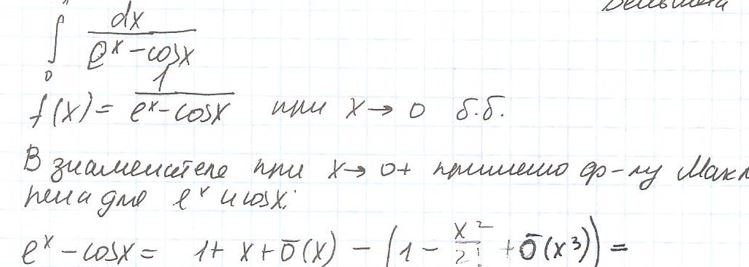 ∫₀ dx / (eˣ - cosx)
f(x) = 1 / (eˣ - cosx) при x → 0 б.б.
В знаменателе при x → 0+ применяю ф-лу Макл
рена для eˣ и cosx:
eˣ - cosx = 1 + x + ō(x) - (1 - x²/2! + ō(x³)) =